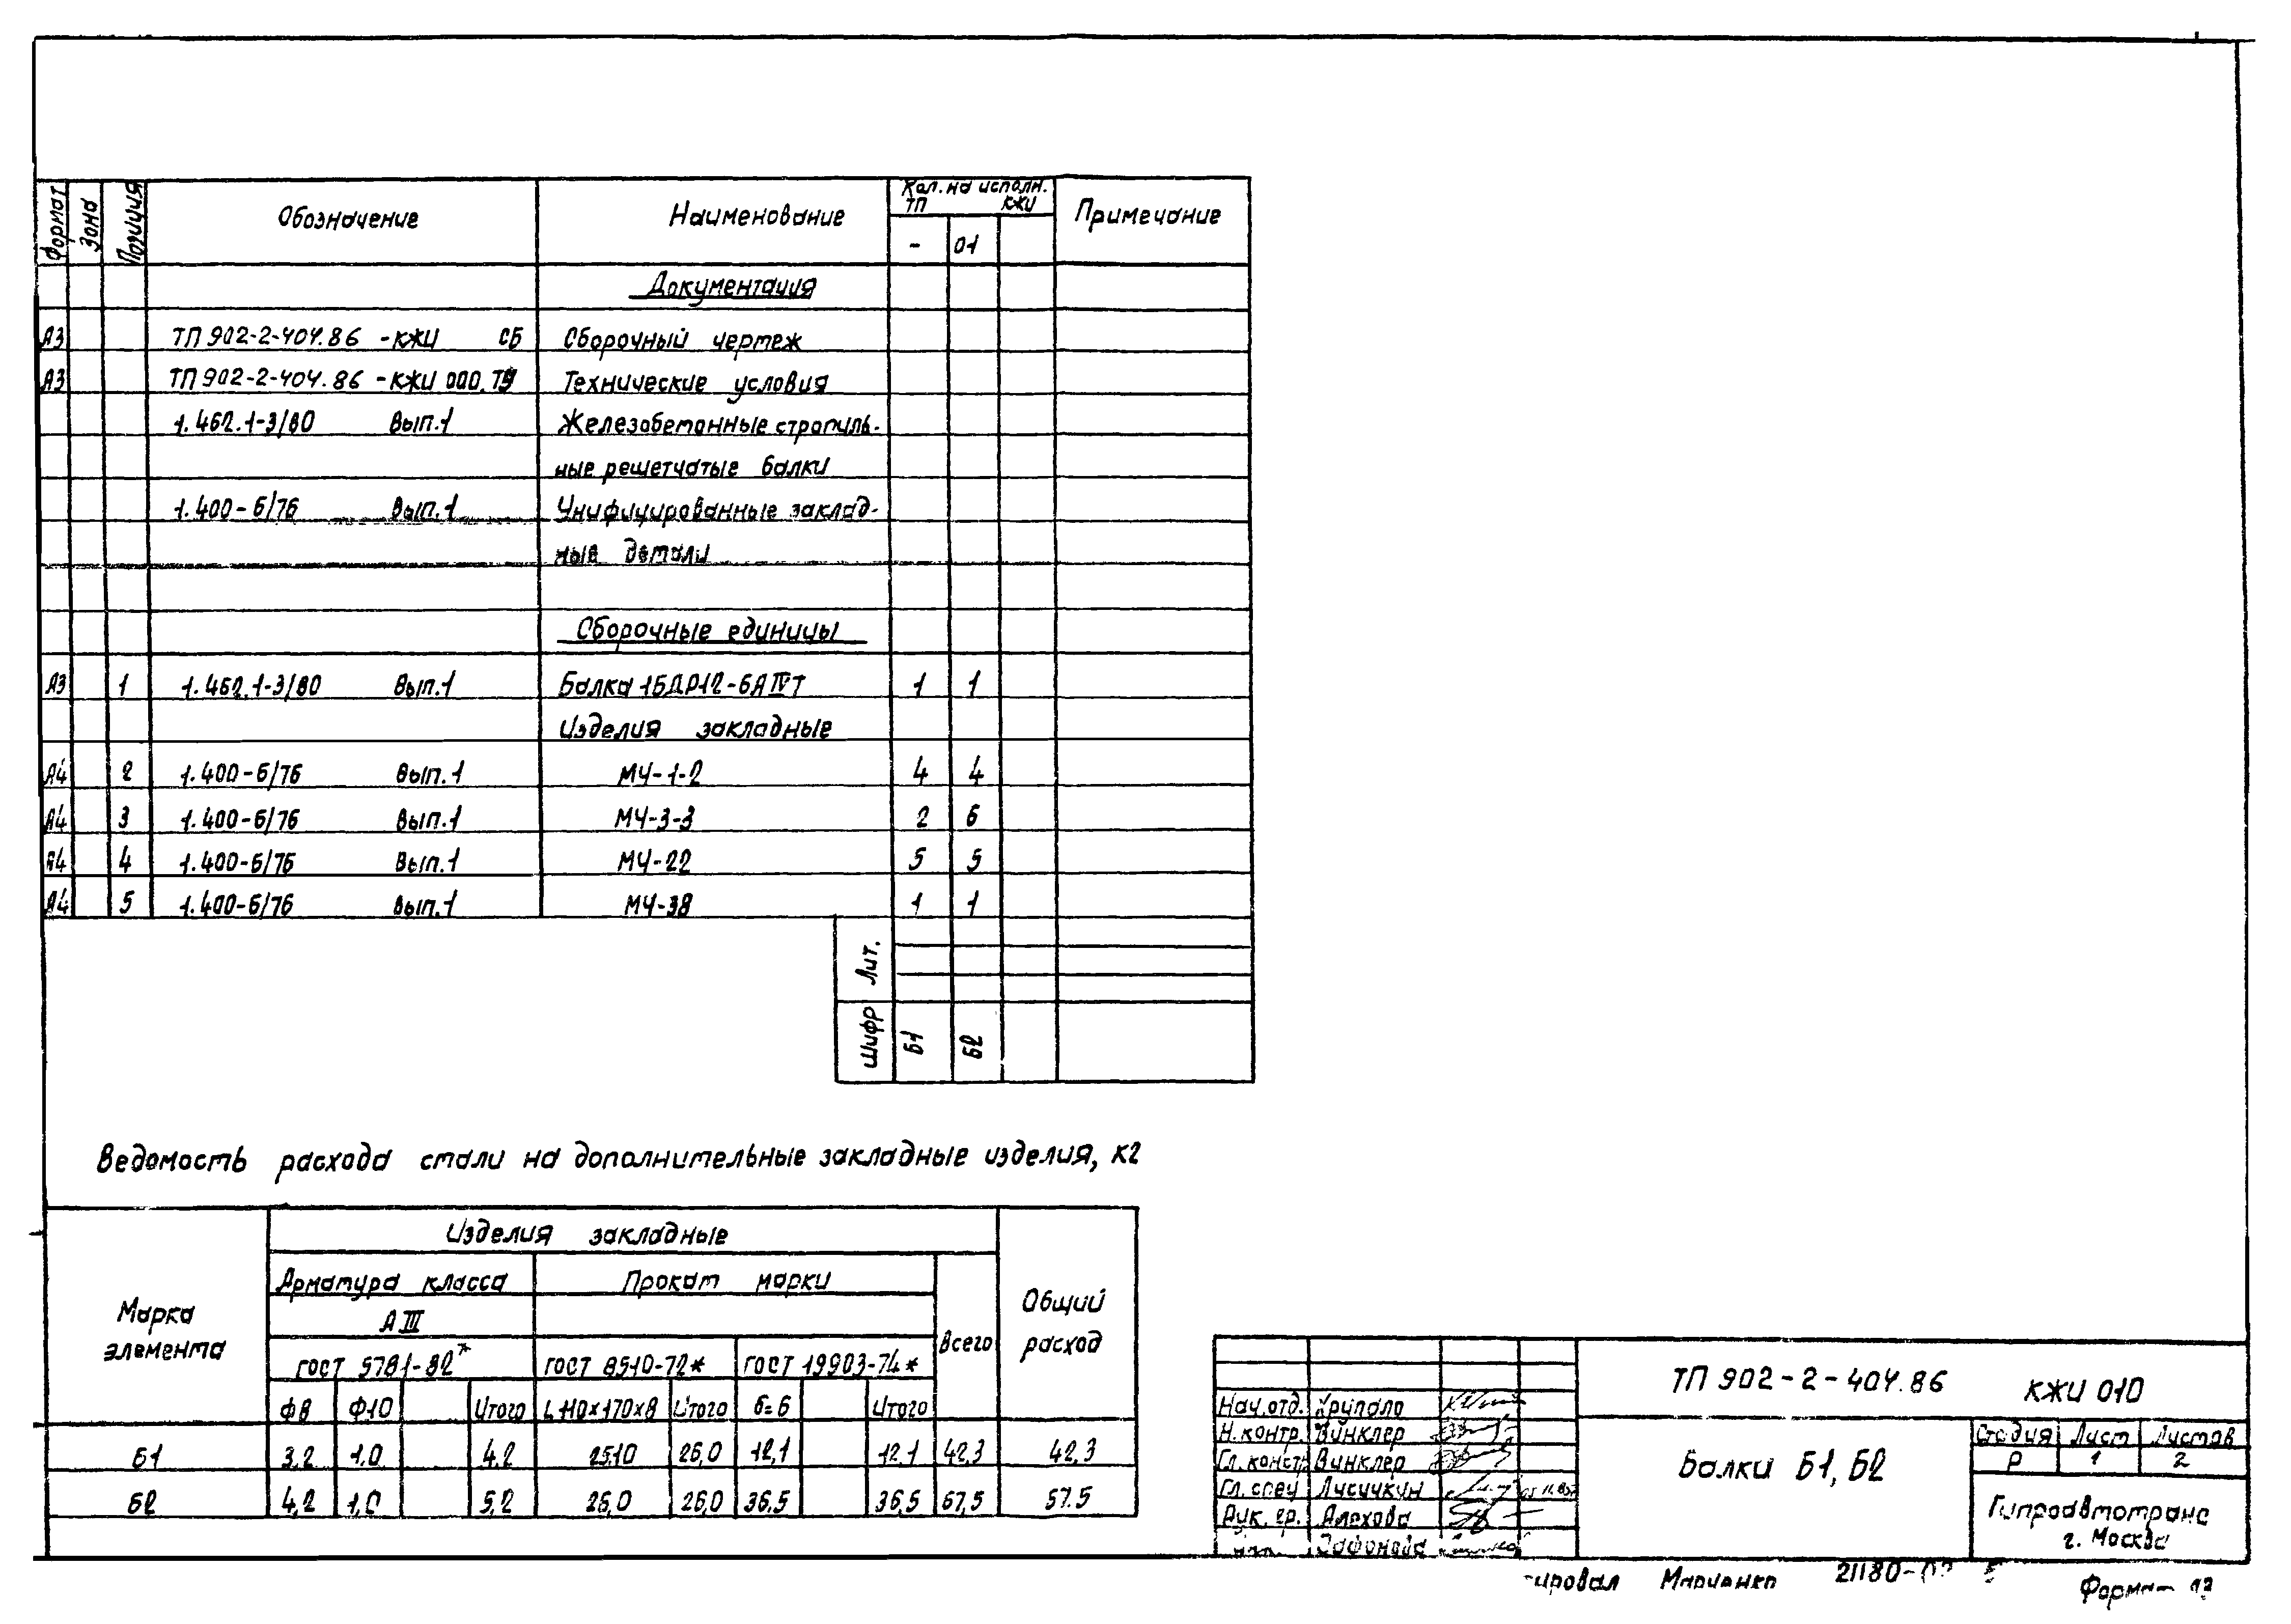 Формат Зона Позиция Обозначение Наименование Кол. на исполн. Примечание
ТП КЖИ
- 01
Документация
А3 ТП 902-2-404.86 -КЖИ СБ Сборочный чертеж
А3 ТП 902-2-404.86 -КЖИ 000.ТУ Технические условия
1.462.1-3/80 Вып.1 Железобетонные стропиль-
ные решетчатые балки
1.400-6/76 Вып.1 Унифицированные заклад-
ные детали
Сборочные единицы
А3 1 1.462.1-3/80 Вып.1 Балка 1БДР12-6АIVТ 1 1
Изделия закладные
А4 2 1.400-6/76 Вып.1 МЧ-1-2 4 4
А4 3 1.400-6/76 Вып.1 МЧ-3-3 2 6
А4 4 1.400-6/76 Вып.1 МЧ-22 5 5
А4 5 1.400-6/76 Вып.1 МЧ-38 1 1
Лит.
Шифр Б1 Б2
Ведомость расхода стали на дополнительные закладные изделия, кг
Марка элемента Изделия закладные Общий расход
Арматура класса Прокат марки Всего
АIII
ГОСТ 5781-82* ГОСТ 8510-72* ГОСТ 19903-74*
Ф8 Ф10 Итого L110х170х8 Итого б=6 Итого
Б1 3,2 1.0 4.2 26,0 12,1 12.1 42,3 42,3
Б2 4,2 1,0 5,2 26,0 26,0 36,5 36,5 67,5
ТП 902-2-404.86 КЖИ 010
Нач.отд. Хрупало
Н.контр. Винклер
Гл.констр Винклер
Гл.спец Лисичкин
Рук. гр. Алехова
Балки Б1, Б2
Стадия Лист Листов
Р 1 2
Гипроавтотранс
г. Москва
21180-
Формат